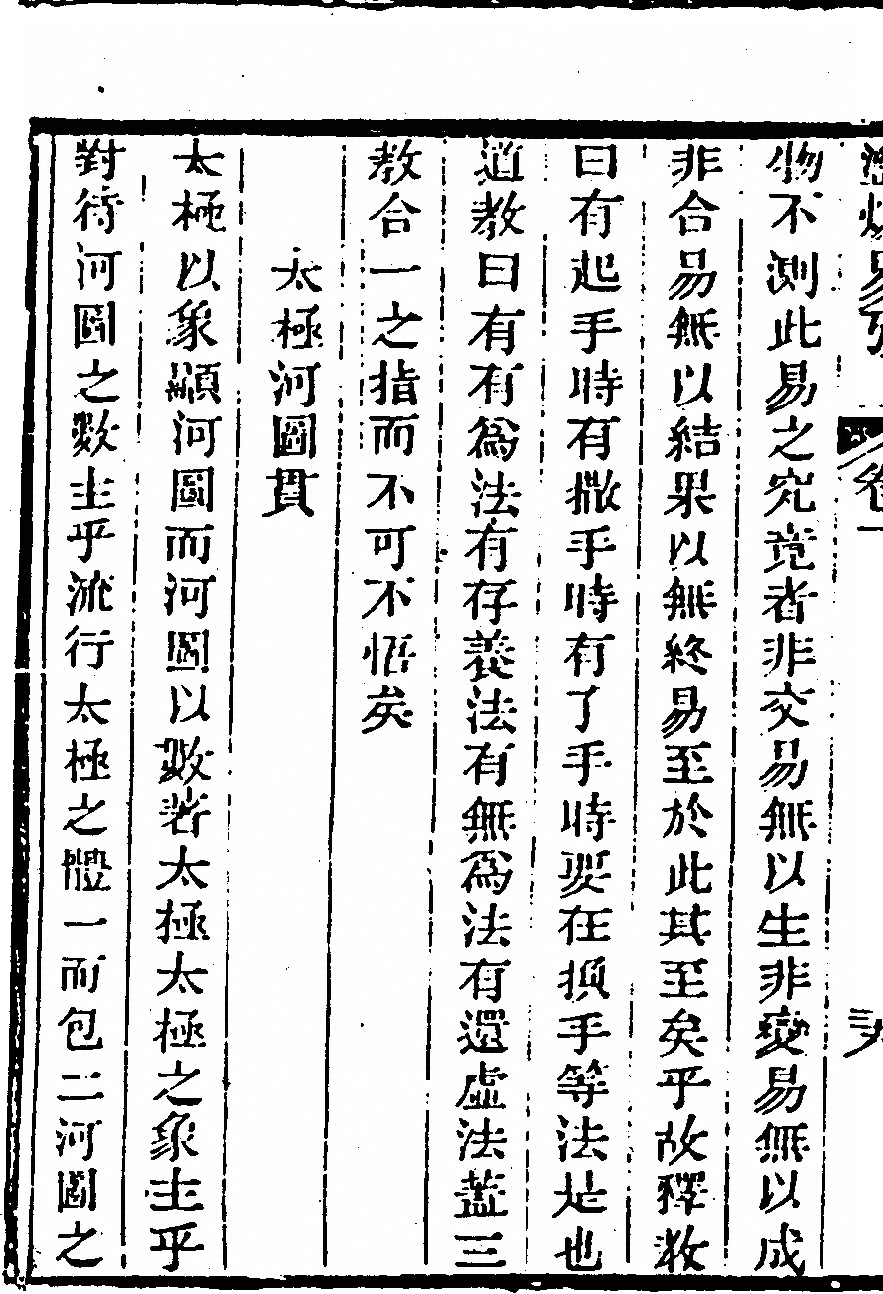 易
卷一
物不測此易之究竟者非交易無以生非變易無以成
非合易無以結果以無終易至於此其至矣乎故釋教
曰有起手時有撒手時有了手時要在損手等法是也
道教曰有有為法有存養法有無為法有還虛法蓋三
教合一之指而不可不悟矣
太極河圖貫
太極以象顯河圖而河圖以數著太極太極之象主乎
對待河圖之數主乎流行太極之體一而包二河圖之